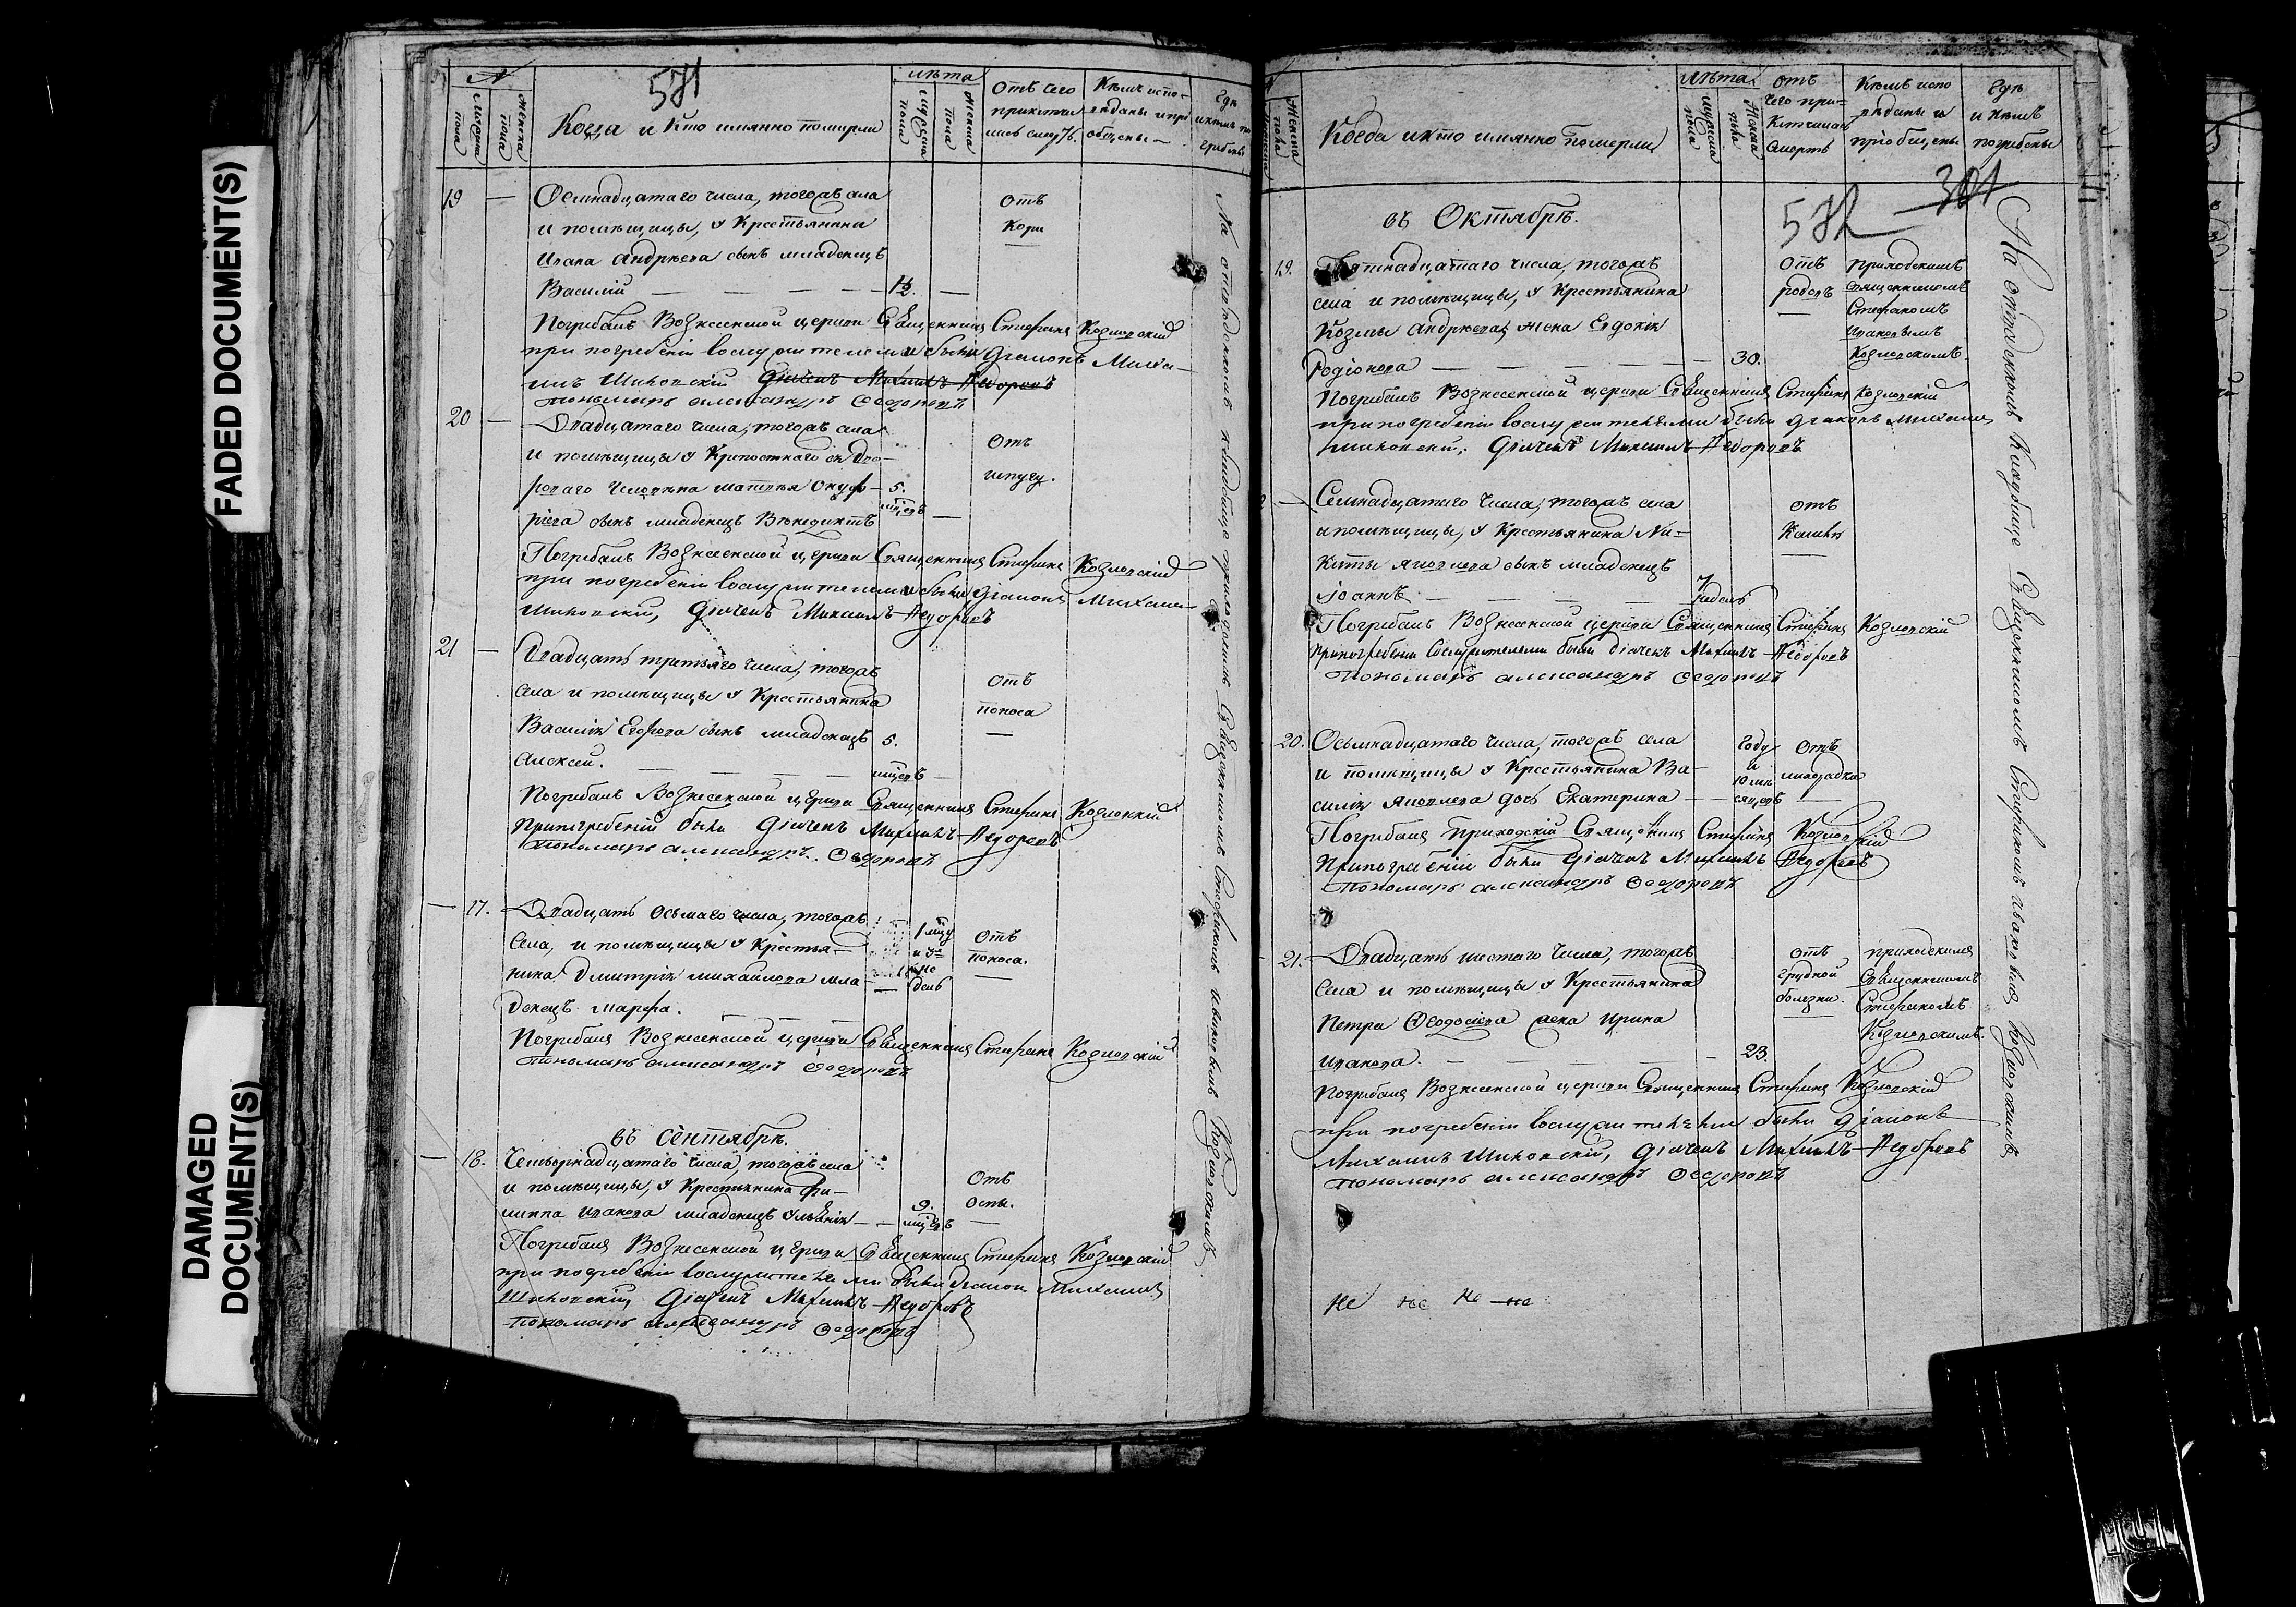 FADED DOCUMENT(S)
DAMAGED DOCUMENT(S)
571
№
Мужеска пола
Женска пола
Когда и кто имянно померли
лѣта
Мужеска пола
Женска пола
Отъ чего приключилась смерть
Кѣмъ исповѣданы и прiобщены
Гдѣ и кѣмъ погребены
19 — Осмнадцатаго числа, тогожъ села
и помѣщицы, у Крестьянина
Ивана Андрѣева сынъ младенецъ
Василiй — 1½. —
Отъ
Кори
Погребалъ Вознесенской церкви Священникъ Стефанъ Козловскiй
при погребенiи вослужителеми были Дiаконъ Миха-
илъ Шиховскiй Дiячекъ Михаилъ Федоровъ
Пономарь Александръ Федоровъ
20 — Двадцатаго числа, тогожъ села
и помѣщицы у Крепостнаго ея дво-
роваго человѣка Матвѣя Онуф-
рiева сынъ младенецъ Венедиктъ
5. мѣсецъ —
Отъ
испугу.
Погребалъ Вознесенской церкви Священникъ Стефанъ Козловскiй
при погребенiи вослужителеми были Дiаконъ Михаилъ
Шиховскiй, Дiячекъ Михаилъ Федоровъ
21 — Двадцать третьяго числа, тогожъ
села и помѣщицы у Крестьянина
Василiя Егорова сынъ младенецъ
Алексей. — 5. мѣсецъ —
Отъ
поноса
Погребалъ Вознесенской церкви Священникъ Стефанъ Козловскiй
При погребенiи были Дiячекъ Михаилъ Федоровъ
Пономарь Александръ Федоровъ
— 17. Двадцать осьмаго числа, тогожъ
села, и помѣщицы у Крестья-
нина Дмитрiя Михайлова мла-
денецъ Марфа.
Отъ
поноса.
Погребалъ Вознесенской церкви Священникъ Стефанъ Козловскiй
Пономарь Александръ Федоровъ
въ Сентябрѣ.
— 18. Четвернадцатаго числа, тогожъ села
и помѣщицы, у Крестьянина Фи-
липпа Иванова младенецъ Улианiя — 9. мѣсецъ
Отъ
Оспы.
Погребалъ Вознесенской церкви Священникъ Стефанъ Козловскiй
при погребенiи вослужителеми были Дiаконъ Михаилъ
Шиховскiй, Дiячекъ Михаилъ Федоровъ
Пономарь Александръ Федоровъ
На отведенномъ кладбище приходскимъ Священникомъ Стефаномъ Ивановымъ Козловскимъ
Женска пола
Когда и кто имянно померли
лѣта
Мужеска пола
Женска пола
отъ чего приключилась смерть
Кѣмъ исповѣданы и прiобщены
Гдѣ и кѣмъ погребены
572
301
въ Октябрѣ.
19. Пятнадцатаго числа, тогожъ
села и помѣщицы, у Крестьянина
Козмы Андрѣева жена Евдокiя
Родiонова — 30.
Отъ
родовъ
Приходскимъ
Священникомъ
Стефаномъ
Ивановымъ
Козловскимъ.
Погребалъ Вознесенской церкви Священникъ Стефанъ Козловскiй
при погребенiи вослужителеми были Дiаконъ Михаилъ
Шиховскiй, Дiячекъ Михаилъ Федоровъ
— Семнадцатаго числа, тогожъ села
и помѣщицы, у Крестьянина Ни-
киты Яковлева сынъ младенецъ
Iоаннъ. — 7 недель
отъ
Кашля
Погребалъ Вознесенской церкви Священникъ Стефанъ Козловскiй
При погребенiи вослужителеми были дiячекъ Михаилъ Федоровъ
Пономарь Александръ Федоровъ
20. Осьмнадцатаго числа, тогожъ села
и помѣщицы у Крестьянина Ва-
силiя Яковлева дочь Екатерина —
году
и
10 мѣ
сяцовъ
Отъ
лихорадки
Погребалъ Приходскiй Священникъ Стефанъ Козловскiй
При погребенiи были Дiячекъ Михаилъ Федоровъ
Пономарь Александръ Федоровъ
21. Двадцать шестаго числа, тогожъ
села и помѣщицы у Крестьянина
Петра Феодосiева жена Ирина
Иванова. — 23.
отъ
грудной
болезни.
приходскимъ
Священникомъ
Стефаномъ
Козловскимъ.
Погребалъ Вознесенской церкви Священникъ Стефанъ Козловскiй
при погребенiи вослужителеми были Дiаконъ
Михаилъ Шиховскiй, Дiячекъ Михаилъ Федоровъ
Пономарь Александръ Федоровъ
На отведенномъ Кладбище Священникомъ Стефаномъ Ивановымъ Козловскимъ
не не не не